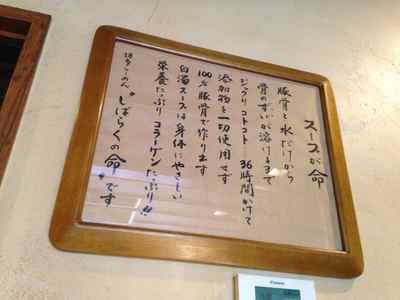 スープが命
豚骨と水だけから
骨のずいが溶けるまで
ジックリコトコト 36時間かけて
添加物を一切使用せず
100%豚骨で作ります
白濁スープは身体にやさしい
栄養たっぷり コラーゲンたっぷり!!
"しばらくの命"です